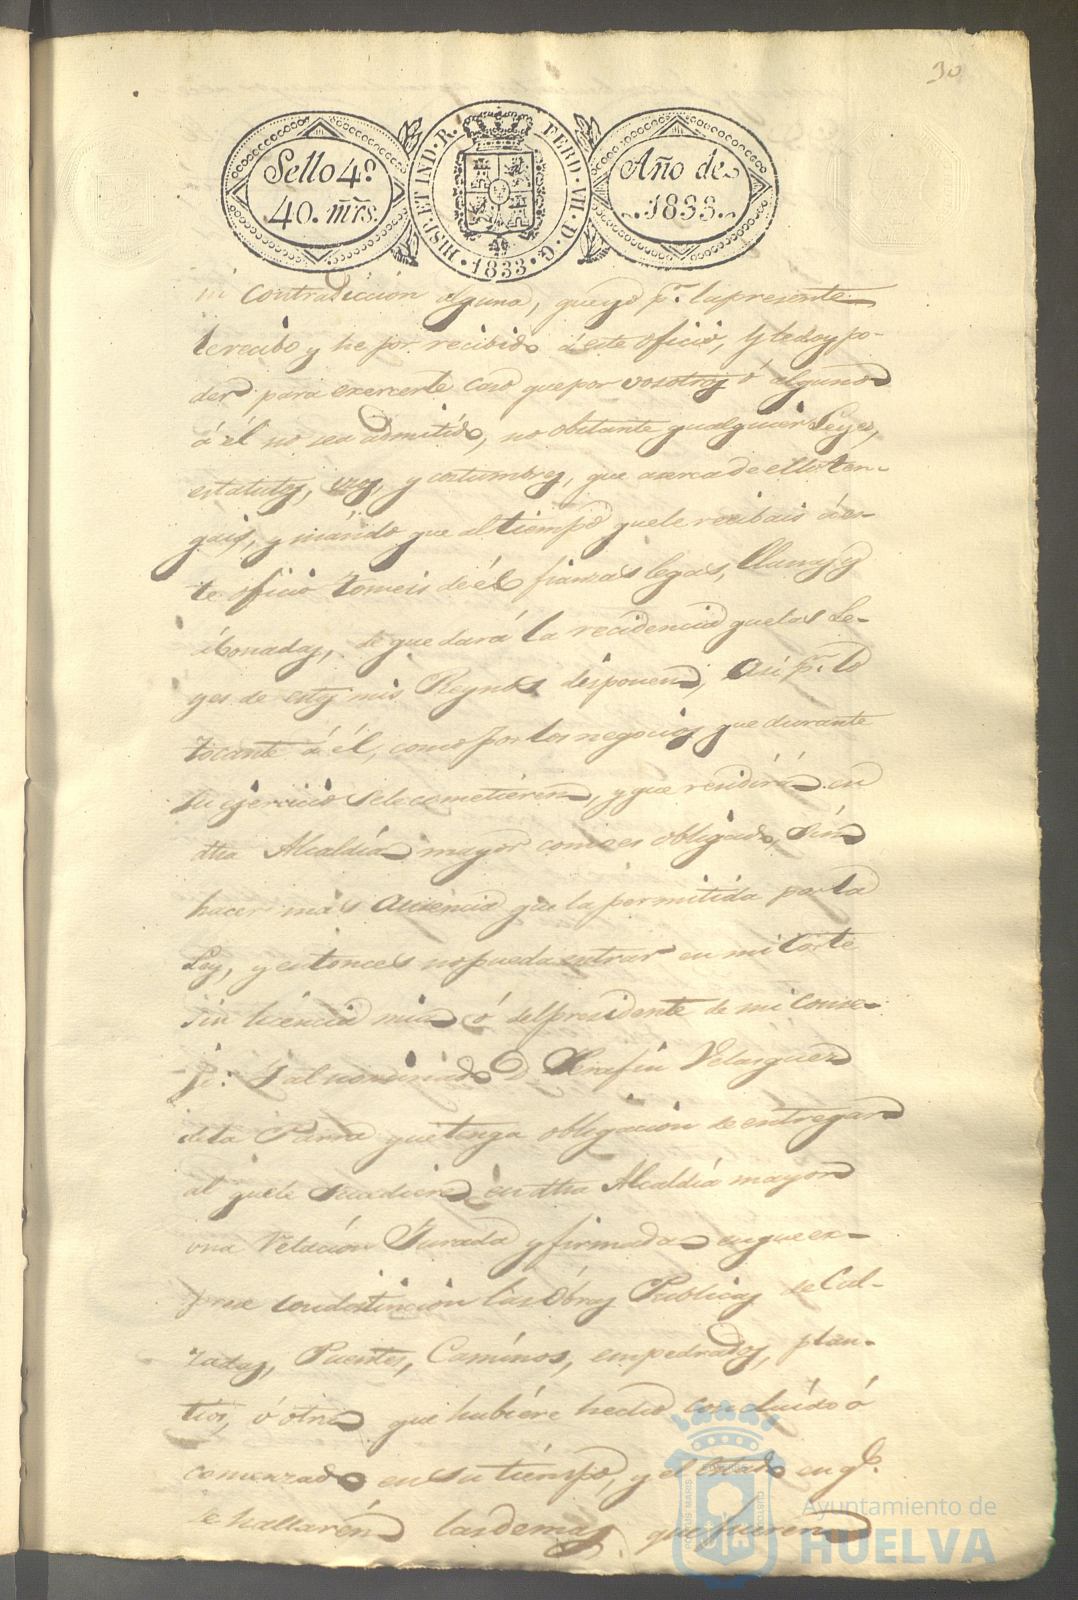 30
Sello 4º
40. mr̃s.
HISP. ET IND. R. FERD. VII. D. G.
· 1833 ·
Año de
1833.
ni contradiccion alguna, que yo pr. la presente
le recibo y he por recibido á este oficio, y le doy po-
der para exercerle caso que por vosotros ó alguno
á él no sea admitido, no obstante qualquier Leyes,
estatutos, usos, y costumbres, que acerca de ello ten-
gais, y mando que al tiempo que le recibais á es-
te oficio tomeis de él fianzas legas, llanas, y
abonadas, de que dará la recidencia que las Le-
yes de estos mis Reynos disponen, asi pr. lo
tocante á él, como por los negocios que durante
su ejercicio se le cometieren, y que rendirá en
dha Alcaldía mayor como es obligado, sin
hacer más ausencia que la permitida por la
Ley, y entonces no pueda entrar en mi Corte
sin licencia mia ó del presidente de mi Conse-
jo: Y al nominado D. Serafin Velasquez
de la Parra que tenga obligacion de entregar
al que le sucediere en dha Alcaldía mayor
una relación Jurada y firmada en que ex-
prese con distincion las Obras Publicas de Cal-
zadas, Puentes, Caminos, empedrados, plan-
tios, ó otras que hubiére hecho concluído ó
comenzado en su tiempo, y el Estado en qe.
se hallarén las demas que fueren
PORTUS MARIS
CUSTODIA
Ayuntamiento de
HUELVA